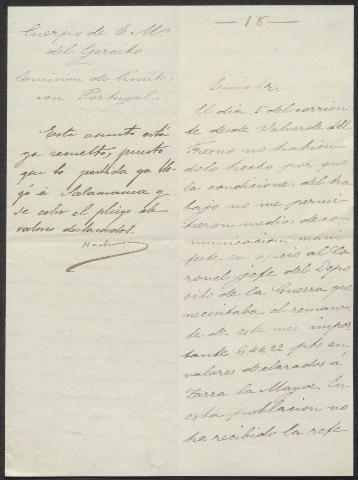 Cuerpo de E. M.
del Ejército
Comisión de límites
con Portugal
Este asunto está
ya resuelto, puesto
que la partida ya lle
gó á Salamanca y
se cobró el pliego de
valores declarados.
—18—
Excmo Sr.
El dia 5 del corrien
te desde Valverde del
Fresno no habién
dolo hecho por que
las condiciones del tra
bajo no me permi
tieron medios de co
municación, mani
festé en oficio al Co
ronel jefe del Depó
sito de la Guerra, que
necesitaba el remanen
te de este mes impor
tante 644,22 pts en
valores declarados á
Zarza la Mayor. En
esta población no
he recibido la refe